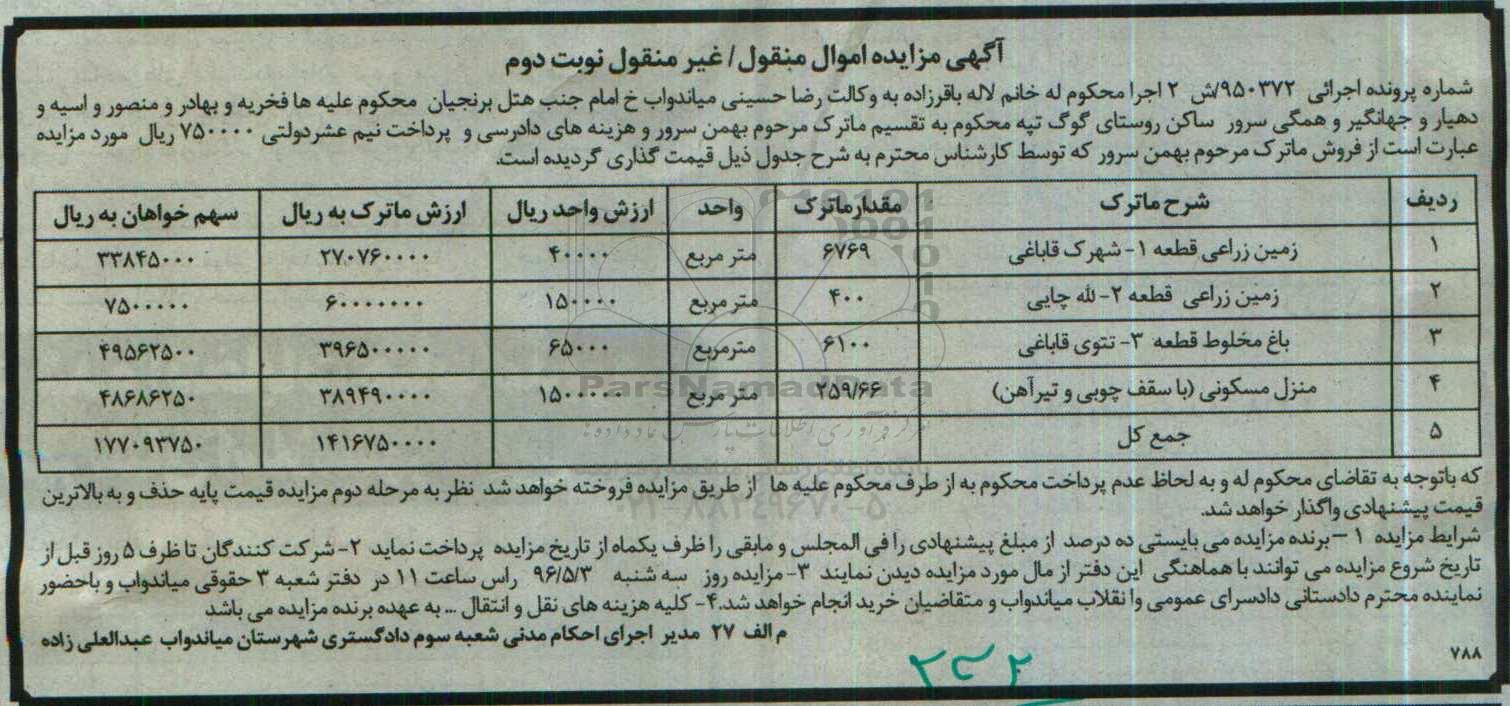 آگهی مزایده اموال منقول/ غیر منقول نوبت دوم
شماره پرونده اجرائی ۹۵۰۳۷۲/ش ۲ اجرا محکوم له خانم لاله باقرزاده به وکالت رضا حسینی میاندواب خ امام جنب هتل برنجیان محکوم علیه ها فخریه و بهادر و منصور و اسیه و
دهیار و جهانگیر و همگی سرور ساکن روستای گوگ تپه محکوم به تقسیم ماترک مرحوم بهمن سرور و هزینه های دادرسی و پرداخت نیم عشردولتی ۷۵۰۰۰۰ ریال مورد مزایده
عبارت است از فروش ماترک مرحوم بهمن سرور که توسط کارشناس محترم به شرح جدول ذیل قیمت گذاری گردیده است.
ردیف شرح ماترک مقدارماترک واحد ارزش واحد ریال ارزش ماترک به ریال سهم خواهان به ریال
۱ زمین زراعی قطعه ۱- شهرک قاباغی ۶۷۶۹ متر مربع ۴۰۰۰۰ ۲۷۰۷۶۰۰۰۰ ۳۳۸۴۵۰۰۰
۲ زمین زراعی قطعه ۲- لله چایی ۴۰۰ متر مربع ۱۵۰۰۰۰ ۶۰۰۰۰۰۰۰ ۷۵۰۰۰۰۰
۳ باغ مخلوط قطعه ۳- تتوی قاباغی ۶۱۰۰ مترمربع ۶۵۰۰۰ ۳۹۶۵۰۰۰۰۰ ۴۹۵۶۲۵۰۰
۴ منزل مسکونی (با سقف چوبی و تیرآهن) ۲۵۹/۶۶ متر مربع ۱۵۰۰۰۰۰ ۳۸۹۴۹۰۰۰۰ ۴۸۶۸۶۲۵۰
۵ جمع کل ۱۴۱۶۷۵۰۰۰۰ ۱۷۷۰۹۳۷۵۰
که باتوجه به تقاضای محکوم له و به لحاظ عدم پرداخت محکوم به از طرف محکوم علیه ها از طریق مزایده فروخته خواهد شد نظر به مرحله دوم مزایده قیمت پایه حذف و به بالاترین
قیمت پیشنهادی واگذار خواهد شد.
شرایط مزایده ۱ –برنده مزایده می بایستی ده درصد از مبلغ پیشنهادی را فی المجلس و مابقی را ظرف یکماه از تاریخ مزایده پرداخت نماید ۲- شرکت کنندگان تا ظرف ۵ روز قبل از
تاریخ شروع مزایده می توانند با هماهنگی این دفتر از مال مورد مزایده دیدن نمایند ۳- مزایده روز سه شنبه ۹۶/۵/۳ راس ساعت ۱۱ در دفتر شعبه ۳ حقوقی میاندواب و باحضور
نماینده محترم دادستانی دادسرای عمومی وا نقلاب میاندواب و متقاضیان خرید انجام خواهد شد.۴- کلیه هزینه های نقل و انتقال ... به عهده برنده مزایده می باشد
م الف ۲۷ مدیر اجرای احکام مدنی شعبه سوم دادگستری شهرستان میاندواب عبدالعلی زاده
۷۸۸
ParsNamadData
۰۲۱-۸۸۳۴۹۶۷۰-۵